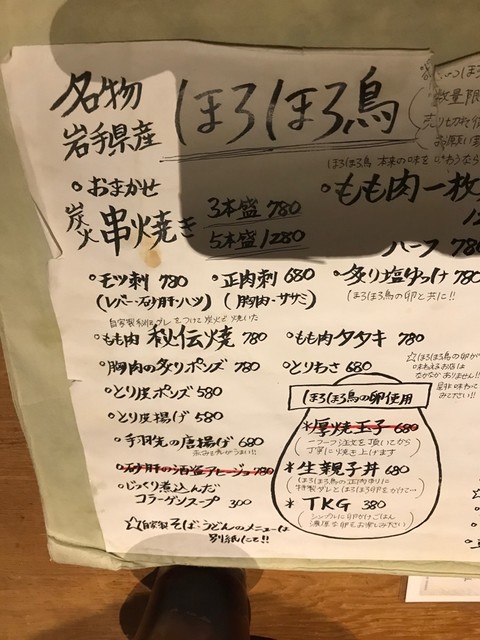 名物
岩手県産
ほろほろ鳥
数量限
ほろほろ鳥 本来の味を
・おまかせ
炭火串焼き
3本盛 780
5本盛 1280
・もも肉一枚
ハーフ 780
・モツ刺 780
(レバー・砂肝・ハツ)
・正肉刺 680
(胸肉・ササミ)
・炙り塩ゆっけ 780
(ほろほろ鳥の卵と共に!!
自家製秘伝ダレをつけて炭火で焼いた
・もも肉 秘伝焼 780
・もも肉タタキ 780
・胸肉の炙りポンズ 780
・とりわさ 680
☆ほろほろ鳥の卵が
味わえるお店は
なかなかありません!!
是非味わって
みてください!!
・とり皮ポンズ 580
・とり皮揚げ 580
・手羽先の唐揚げ 680
・砂肝の酒盗アヒージョ 780
・じっくり煮込んだ
コラーゲンスープ 300
☆自家製そば・うどんのメニューは
別紙にて!!
ほろほろ鳥の卵使用
*厚焼玉子 680
丁寧に焼き上げます
*生親子丼 680
ほろほろ鳥の正肉のユッケに
特製ダレとほろほろ卵をかけて…
*TKG 380
シンプルに卵かけごはん
濃厚な卵をお楽しみ下さい